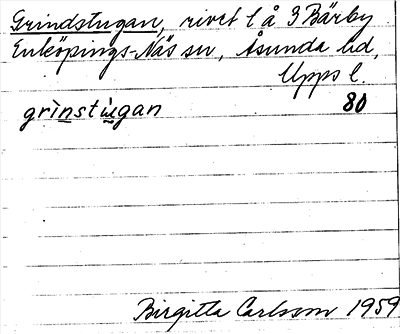 Grindstugan, rivet l å 3 Bärby
Enköpings-Näs sn, Åsunda hd,
Upps l.
grìnstùgan 80
Birgitta Carlsson 1959